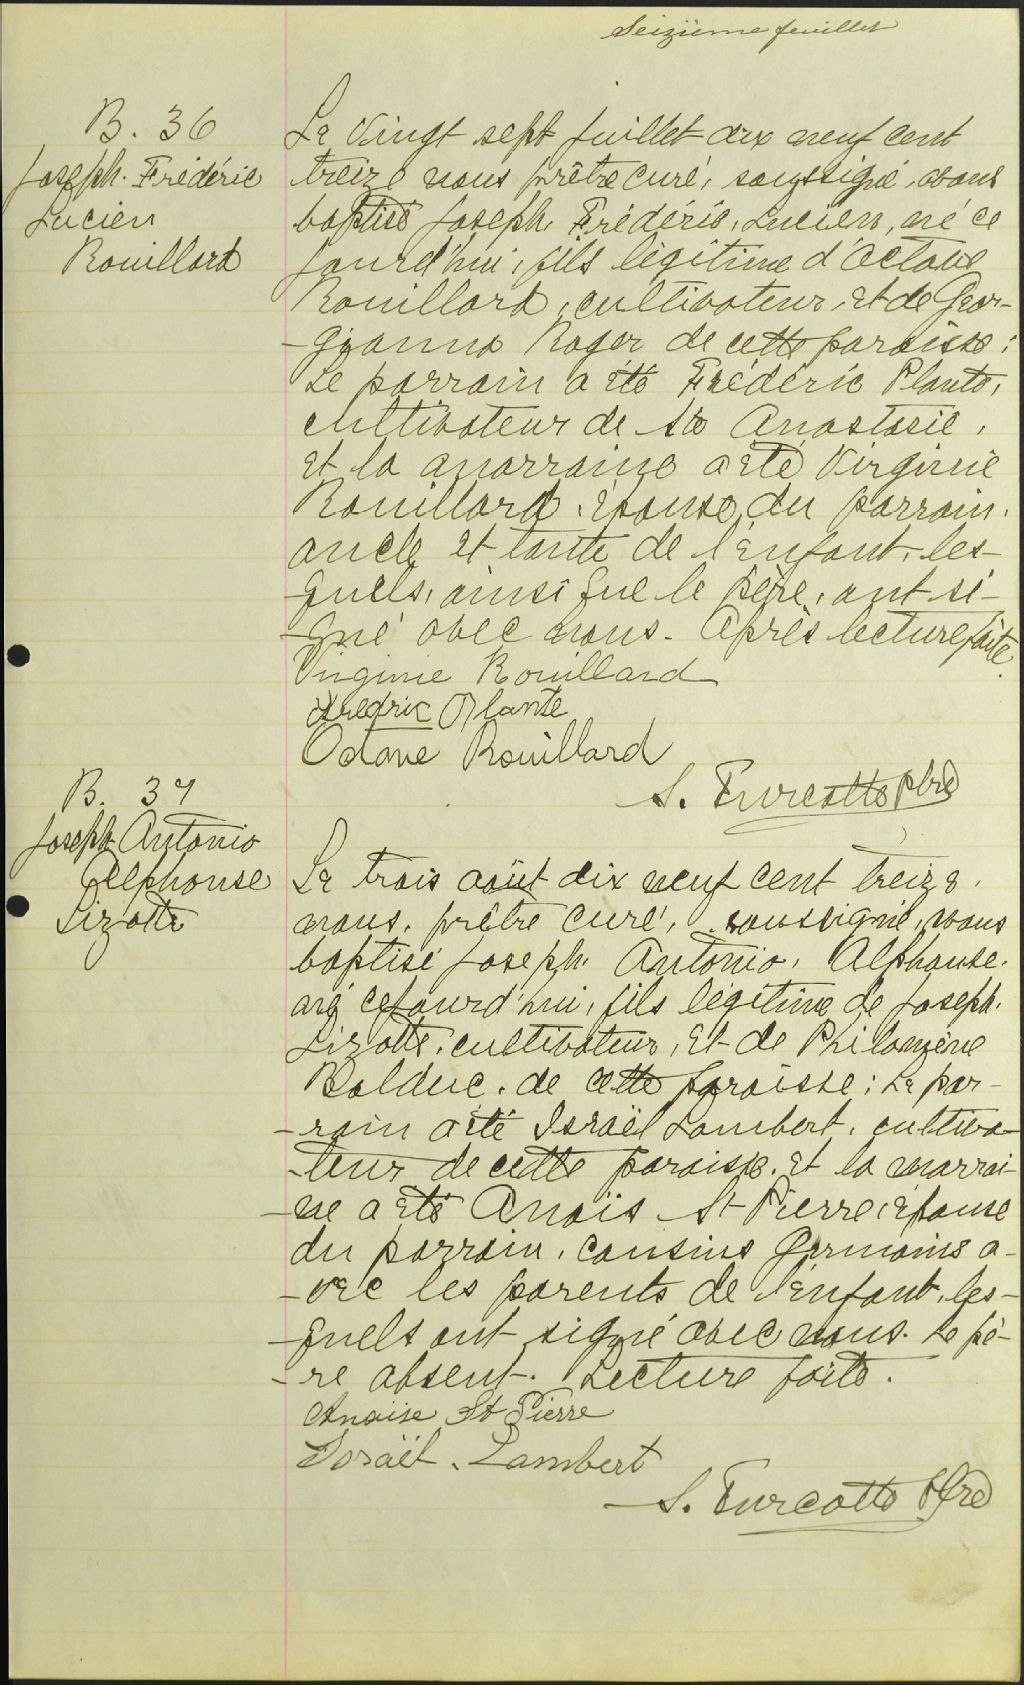 Seizième feuillet
B. 36
Joseph. Frédéric
Lucien
Rouillard
Le vingt sept juillet dix neuf cent
treize nous prêtre curé, soussigné, avons
baptisé Joseph, Frédéric, Lucien, né ce
jourd'hui, fils légitime d'Octave
Rouillard, cultivateur, et de Geor-
-gianna Roger de cette paroisse:
Le parrain a été Frédéric Plante,
cultivateur de Ste Anastasie,
et la marraine a été Virginie
Rouillard, épouse du parrain,
oncle et tante de l'enfant, les-
-quels, ainsi que le père, ont si-
-gné avec nous. Après lecture faite.
Virginie Rouillard
Fredric Plante
Octave Rouillard
S. Turcotte Ptre
B. 37
Joseph Antonio
Alphonse
Lizotte
Le trois août dix neuf cent treize,
nous, prêtre curé, soussigné, avons
baptisé Joseph, Antonio, Alphonse,
né cejourd'hui, fils légitime de Joseph
Lizotte, cultivateur, et de Philomène
Bolduc, de cette paroisse: Le par-
-rain a été Israël Lambert, cultiva-
-teur de cette paroisse, et la marrai-
-ne a été Anaïs St-Pierre, épouse
du parrain, cousins germains a-
-vec les parents de l'enfant, les-
-quels ont signé avec nous. Le pè-
-re absent. Lecture faite.
Anaïse St Pierre
Israël. Lambert
S. Turcotte Ptre